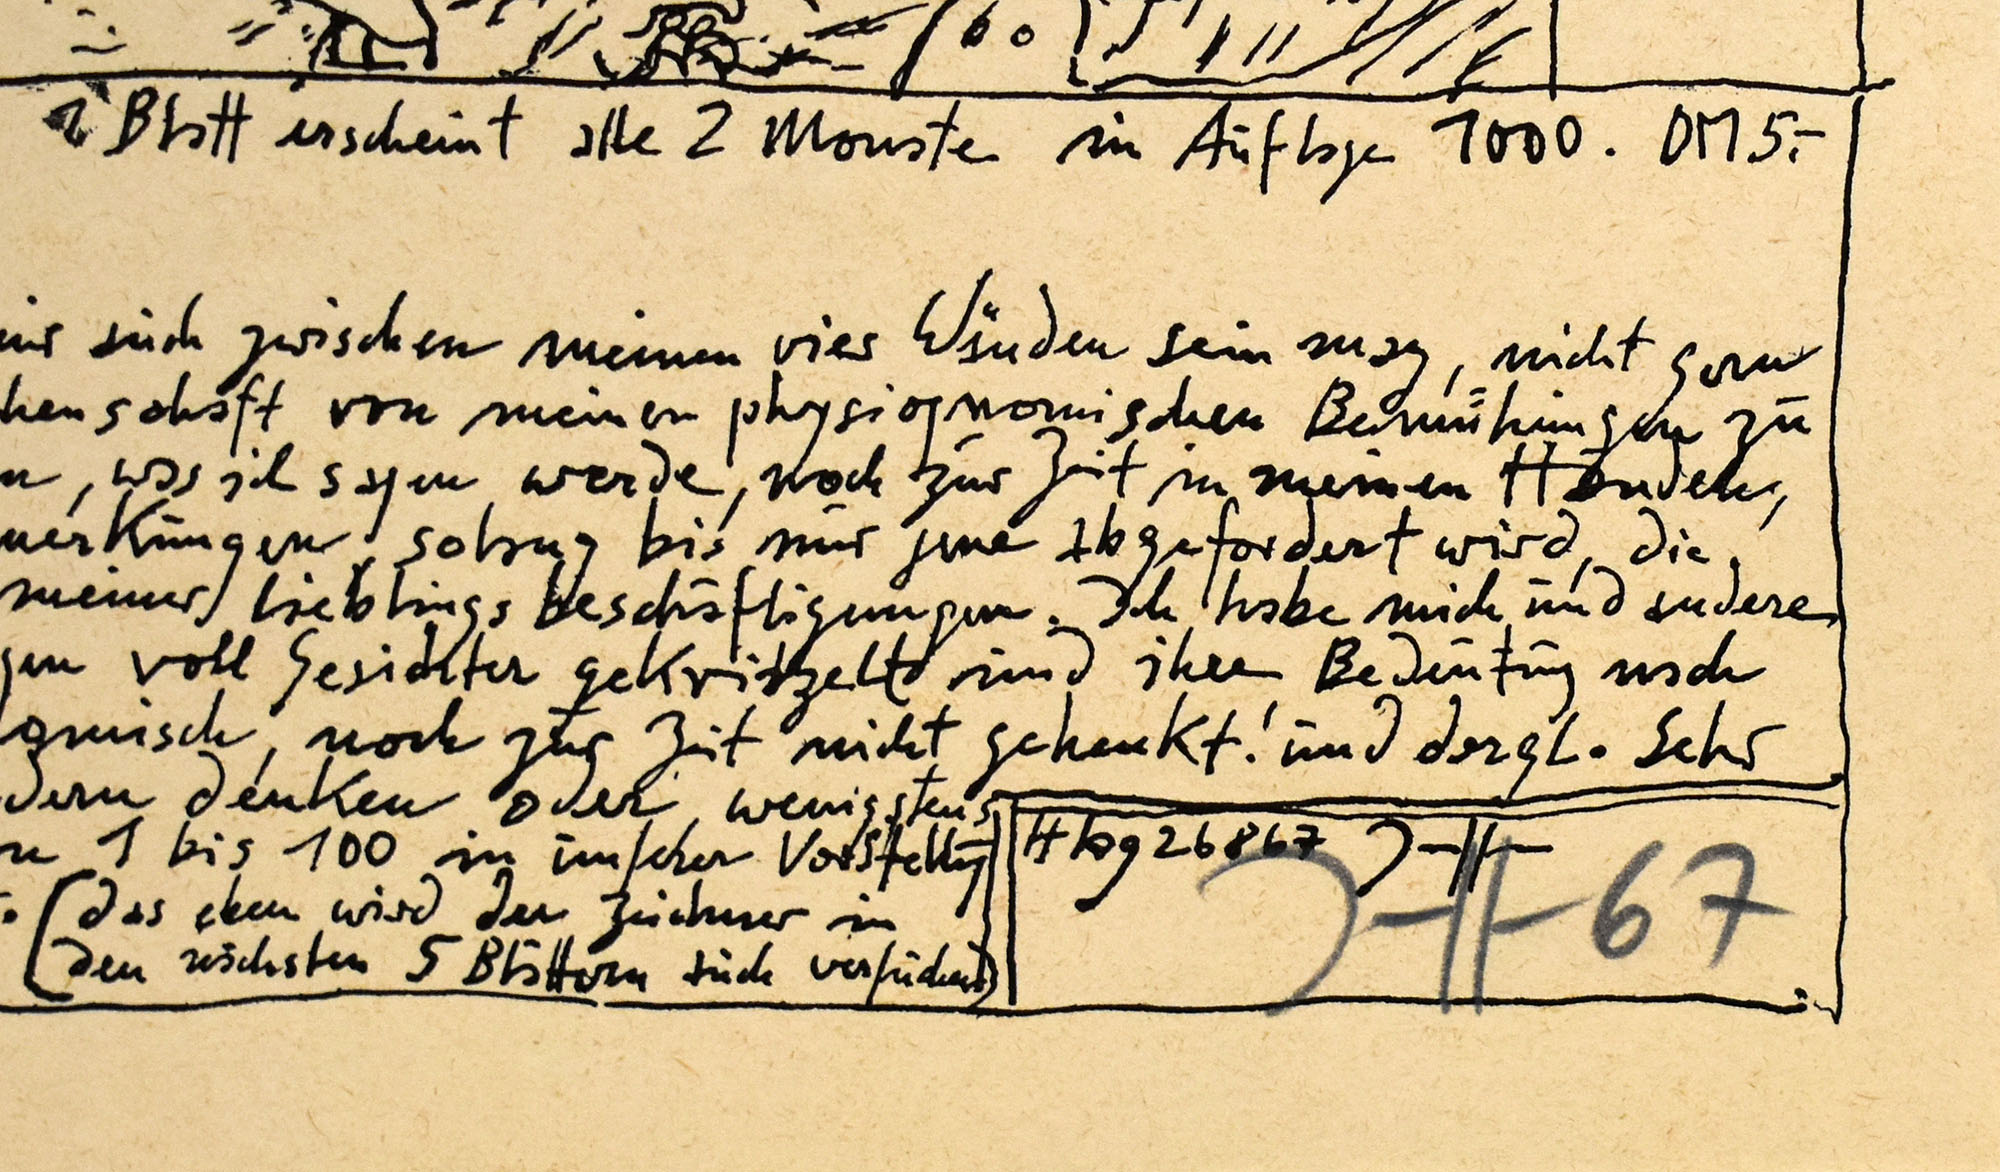 1 Blatt erscheint alle 2 Monate in Auflage 1000. DM 5.-
mir auch zwischen meinen vier Wänden sein mag, nicht gern
henschaft von meinen physiognomischen Bemühungen zu
n, was ich sagen werde, noch zur Zeit in meinen Händen,
merkungen, solang bis mir jene abgefordert wird, die
meiner Lieblingsbeschäftigungen. Ich habe mich und andere
gen voll Gesichter gekritzelt und ihre Bedeutung nach
omisch, noch zur Zeit nicht gehenkt! und dergl. Sehr
dern denken oder wenigstens
n 1 bis 100 in unserer Vorstellung
(das eben wird der Zeichner in
den nächsten 5 Blättern auch versuchen)
Hbg 26867
67